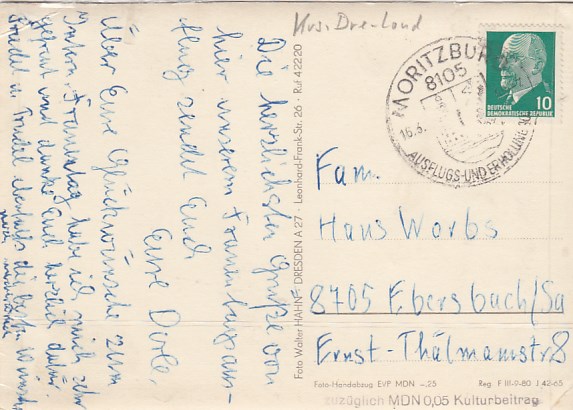 Krs. Dre-Land
Die herzlichsten Grüße von
hier unserem Frauentagsaus-
flug sendet Euch
Eure Dorle.
Über Eure Glückwünsche zum
Frauentag habe ich mich sehr
gefreut und danke Euch herzlich dafür.
Foto Walter HAHN · DRESDEN A 27 · Leonhard-Frank-Str. 26 · Ruf 42220
MORITZBURG
8105
16.3.
AUSFLUGS-UND ERHOLUNGSO
DEUTSCHE
DEMOKRATISCHE REPUBLIK
10
Fam.
Hans Worbs
8705 Ebersbach/Sa
Ernst-Thälmannstr 8
Foto-Handabzug EVP MDN -,25 Reg. F III-9-80 J 42-65
zuzüglich MDN 0,05 Kulturbeitrag.